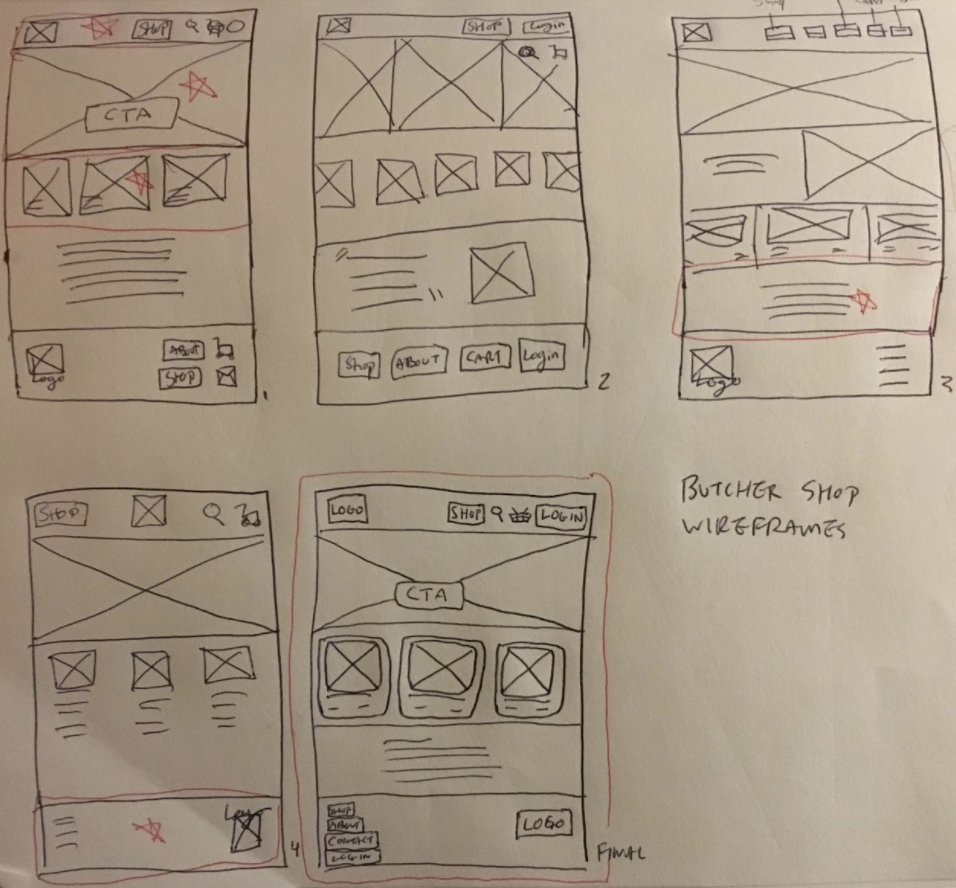 SHOP
CTA
Logo
ABOUT
SHOP
1
SHOP Login
Shop ABOUT CART Login
2
Logo
3
SHOP
4
LOGO SHOP LOGIN
CTA
SHOP
ABOUT
CONTACT
LOGIN
LOGO
FINAL
BUTCHER SHOP
WIREFRAMES